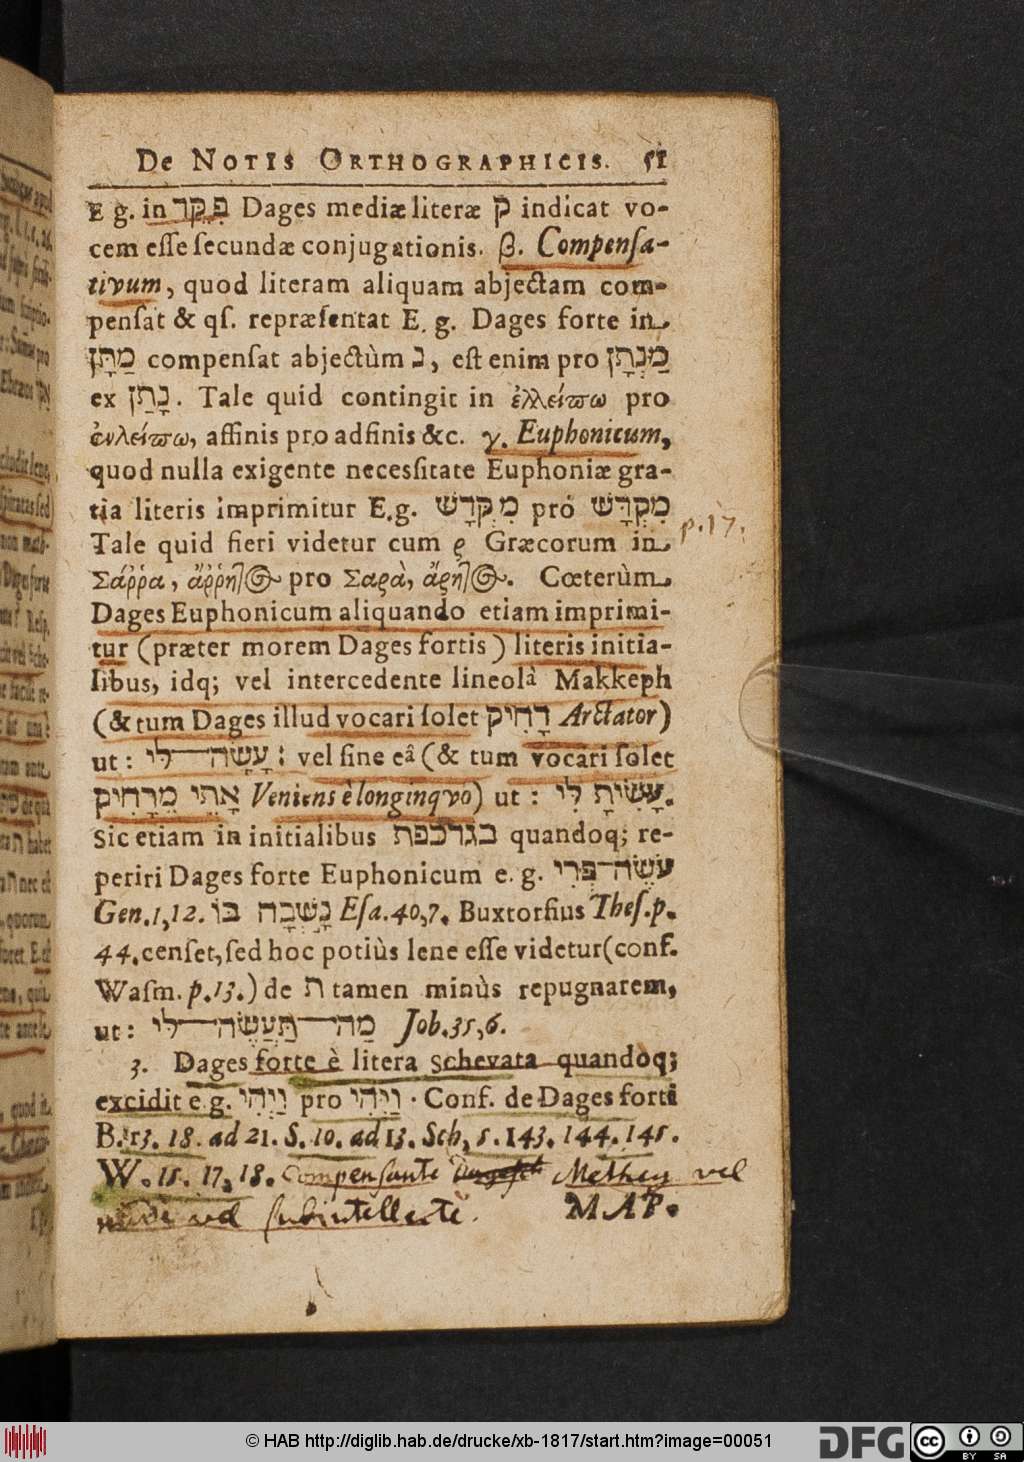 De Notis Orthographicis. 51
E g. in פִּקֵּד Dages mediæ literæ ק indicat vo-
cem eſſe ſecundæ conjugationis. β. Compenſa-
tivum, quod literam aliquam abjectam com-
penſat & qſ. repræſentat E. g. Dages forte in
מַתָּן compenſat abjectùm נ, eſt enim pro מַנְתָן
ex נָתַן. Tale quid contingit in ἐλλείπω pro
ἐνλείπω, affinis pro adfinis &c. γ. Euphonicum,
quod nulla exigente necesſitate Euphoniæ gra-
tia literis imprimitur E.g. מִקְּדָשׁ pro מִקְדָּשׁ
p. 17.
Tale quid fieri videtur cum ρ Græcorum in
Σάῤῥα, ἄῤῥητος pro Σαρὰ, ἄρητος. Cœterùm
Dages Euphonicum aliquando etiam imprimi-
tur (præter morem Dages fortis) literis initia-
libus, idq; vel intercedente lineolâ Makkeph
(& tum Dages illud vocari ſolet דָּחִיק Arctator)
ut: עָשָׂה־לִּי: vel ſine eâ (& tum vocari ſolet
אָתֵי מֵרָחִיק Veniens è longinquo) ut: עָשִׂיתָ לִּי.
Sic etiam in initialibus בגדכפת quandoq; re-
periri Dages forte Euphonicum e. g. עֹשֶׂה־פְּרִי
Gen. 1,12. נָשְׁבָה בּוֹ Eſa. 40,7. Buxtorfius Theſ. p.
44. cenſet, ſed hoc potiùs lene eſſe videtur (conf.
Waſm. p. 13.) de ת tamen minùs repugnarem,
ut: מַה־תַּעֲשֶׂה־לּוֹ Job. 35,6.
3. Dages forte è litera Schevata quandoq;
excidit e g. וַיְהִי pro וַיְּהִי. Conf. de Dages forti
B. 13. 18. ad 21. S. 10. ad 13. Sch, 5. 143. 144. 145.
W. 15. 17, 18. compenſante Metheg vel
vel ſubintellecte.
MAP.
© HAB http://diglib.hab.de/drucke/xb-1817/start.htm?image=00051
DFG
cc BY SA